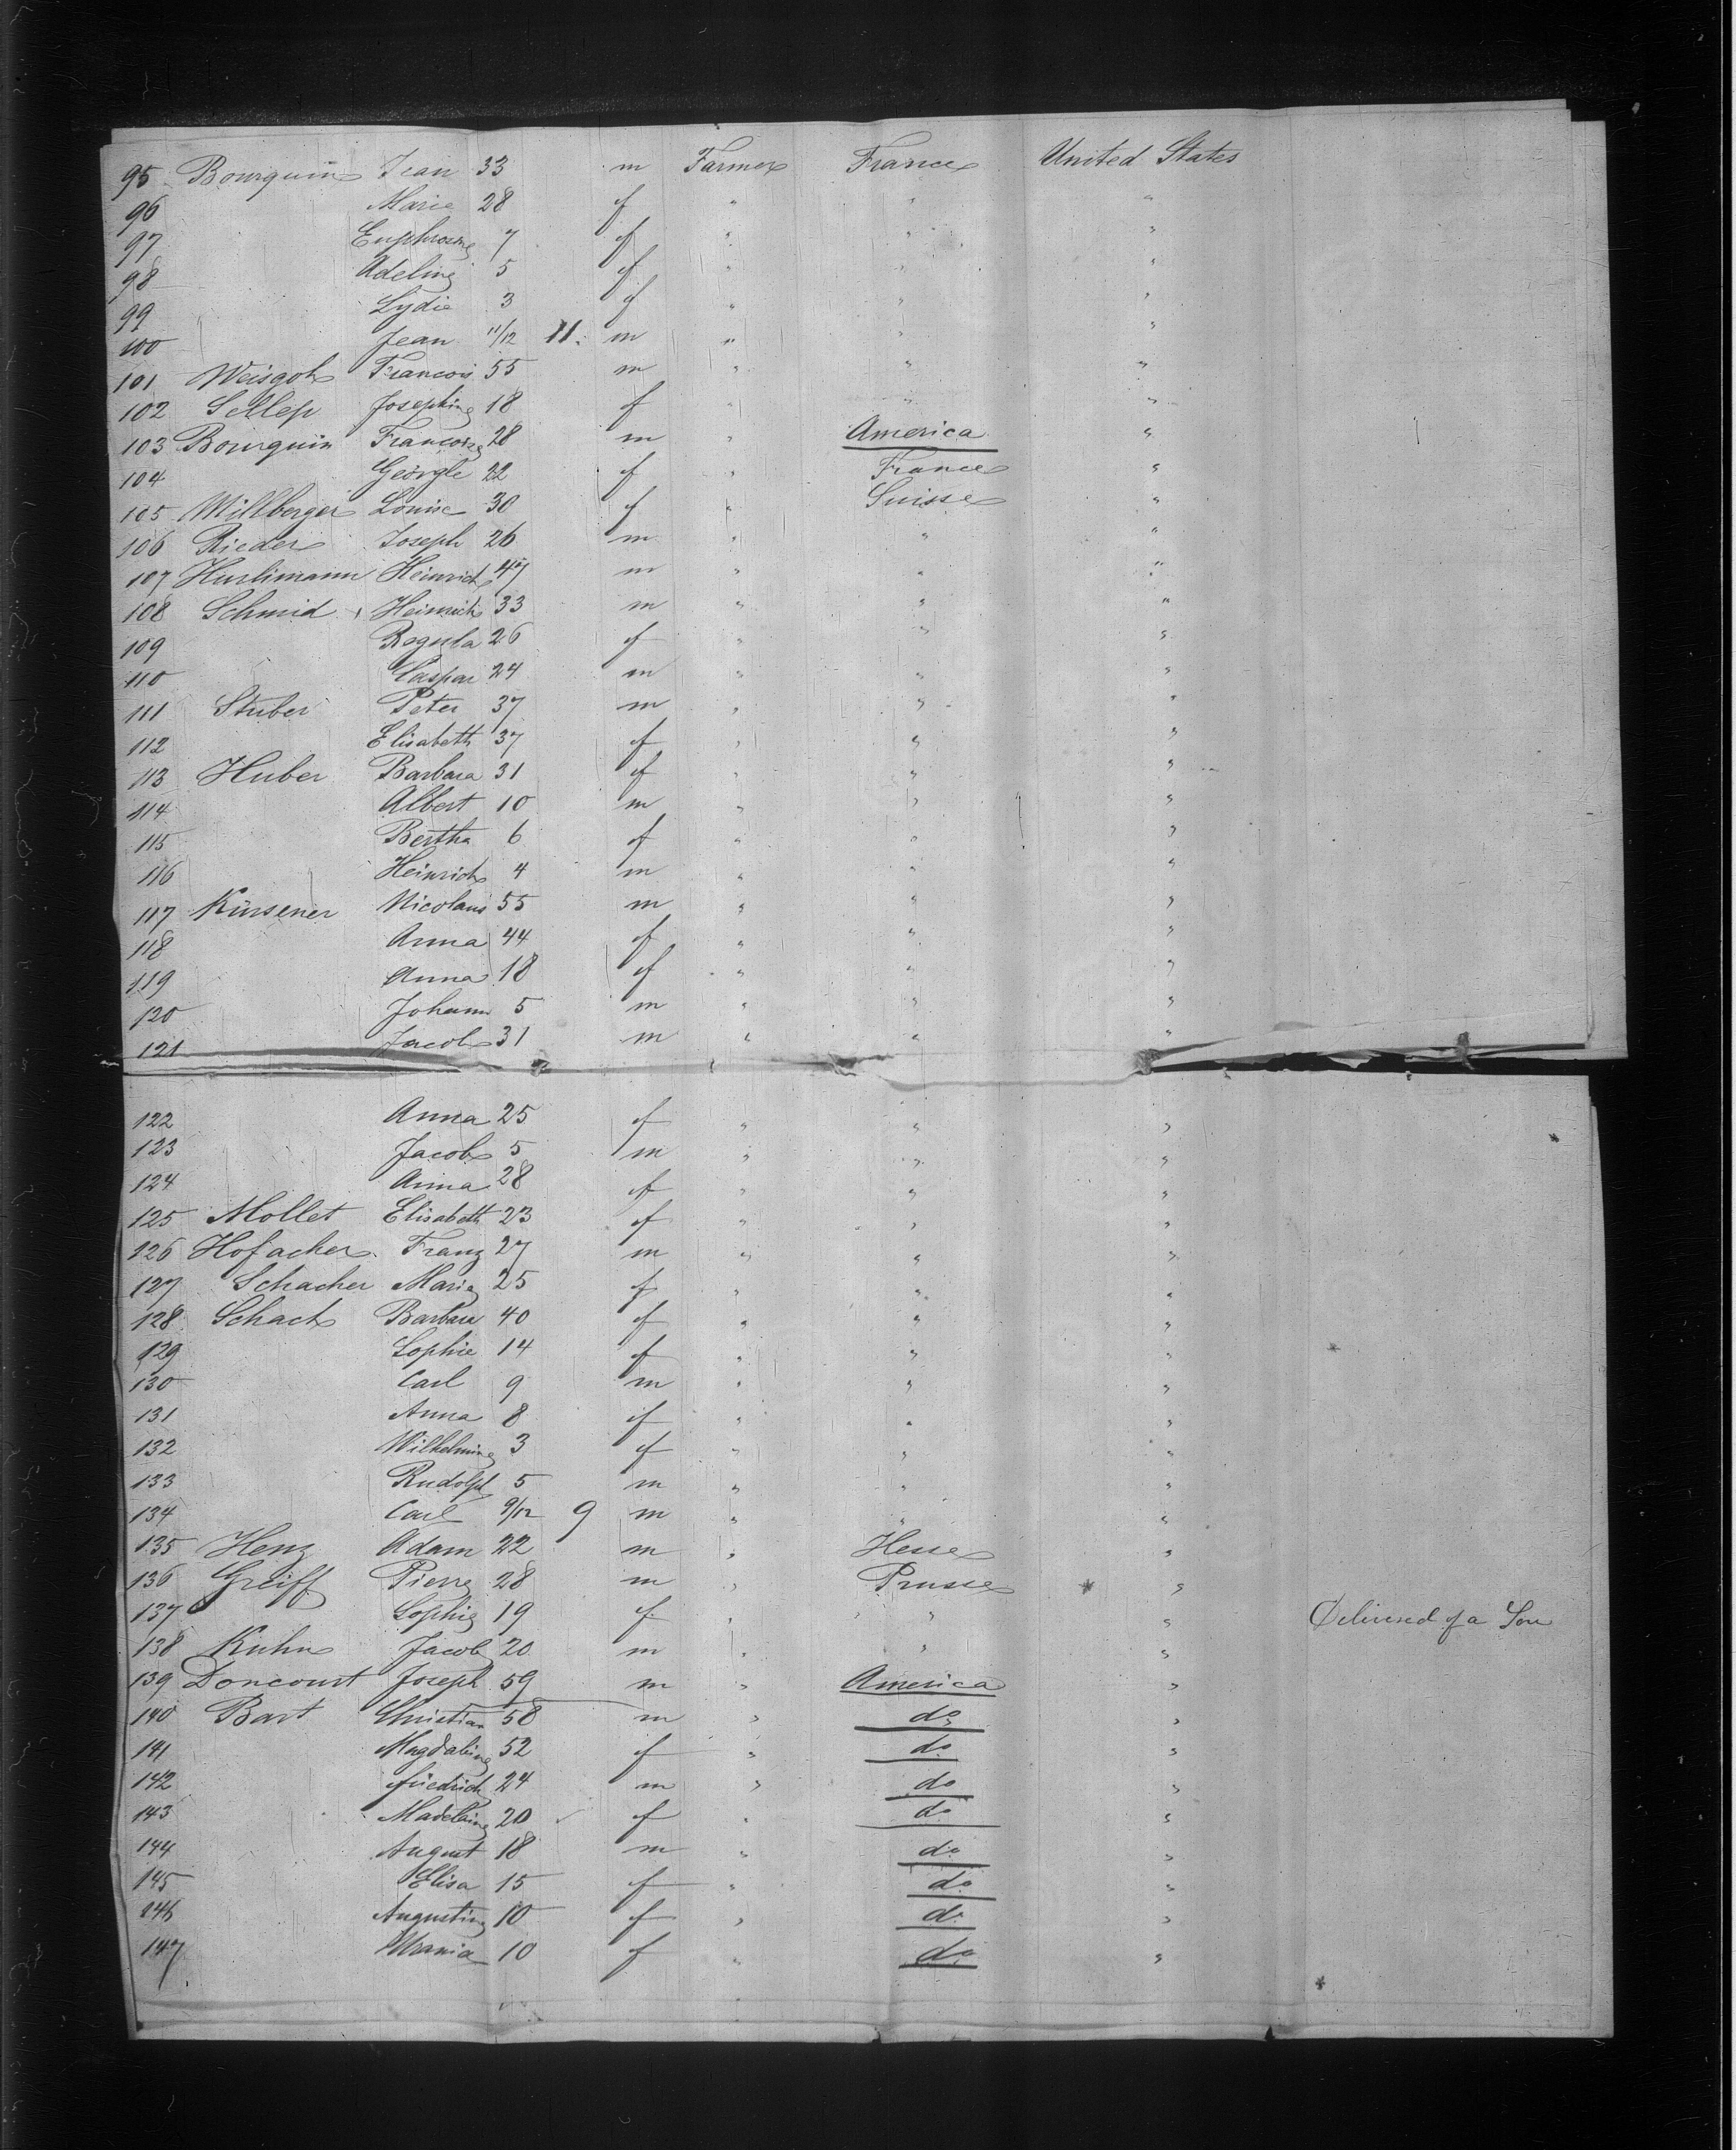 95 Bourquin Jean 33 m Farmer France United States
96 Marie 28 f " " "
97 Euphrosine 7 f " " "
98 Adeline 5 f " " "
99 Lydie 3 f " " "
100 Jean 11/12 11. m " " "
101 Francois 55 m " " "
102 Josephine 18 f " " "
103 Bourquin Francoise 28 m " America "
104 22 f " France "
105 Millberger Louise 30 f " Suisse "
106 Rieder Joseph 26 m " " "
107 Hurlimann Heinrich 47 m " " "
108 Schmid Heinrich 33 m " " "
109 Regula 26 f " " "
110 Caspar 24 m " " "
111 Stuber Peter 37 m " " "
112 Elisabeth 37 f " " "
113 Huber Barbara 31 f " " "
114 Albert 10 m " " "
115 Bertha 6 f " " "
116 Heinrich 4 m " " "
117 Kürsener Nicolaus 55 m " " "
118 Anna 44 f " " "
119 Anna 18 f " " "
120 Johann 5 m " " "
121 Jacob 31 m " " "
122 Anna 25 f " " "
123 Jacob 5 m " " "
124 Anna 28 f " " "
125 Mollet Elisabeth 23 f " " "
126 Hofacher Franz 27 m " " "
127 Schacher Maria 25 f " " "
128 Schach Barbara 40 f " " "
129 Sophie 14 f " " "
130 Carl 9 m " " "
131 Anna 8 f " " "
132 Wilhelmine 3 f " " "
133 Rudolph 5 m " " "
134 Carl 9/12 9 m " " "
135 Henz Adam 22 m " Hesse "
136 Greiff Pierre 28 m " Prusse "
137 Sophie 19 f " " " Delivered of a Son
138 Kuhn Jacob 20 m " " "
139 Doncourt Joseph 59 m " America "
140 Bart Christian 58 m " do "
141 Magdaleine 52 f " do "
142 friedrich 24 m " do "
143 Madelaine 20 f " do "
144 August 18 m " do "
145 Elisa 15 f " do "
146 Augustine 10 f " do "
147 Urania 10 f " do "